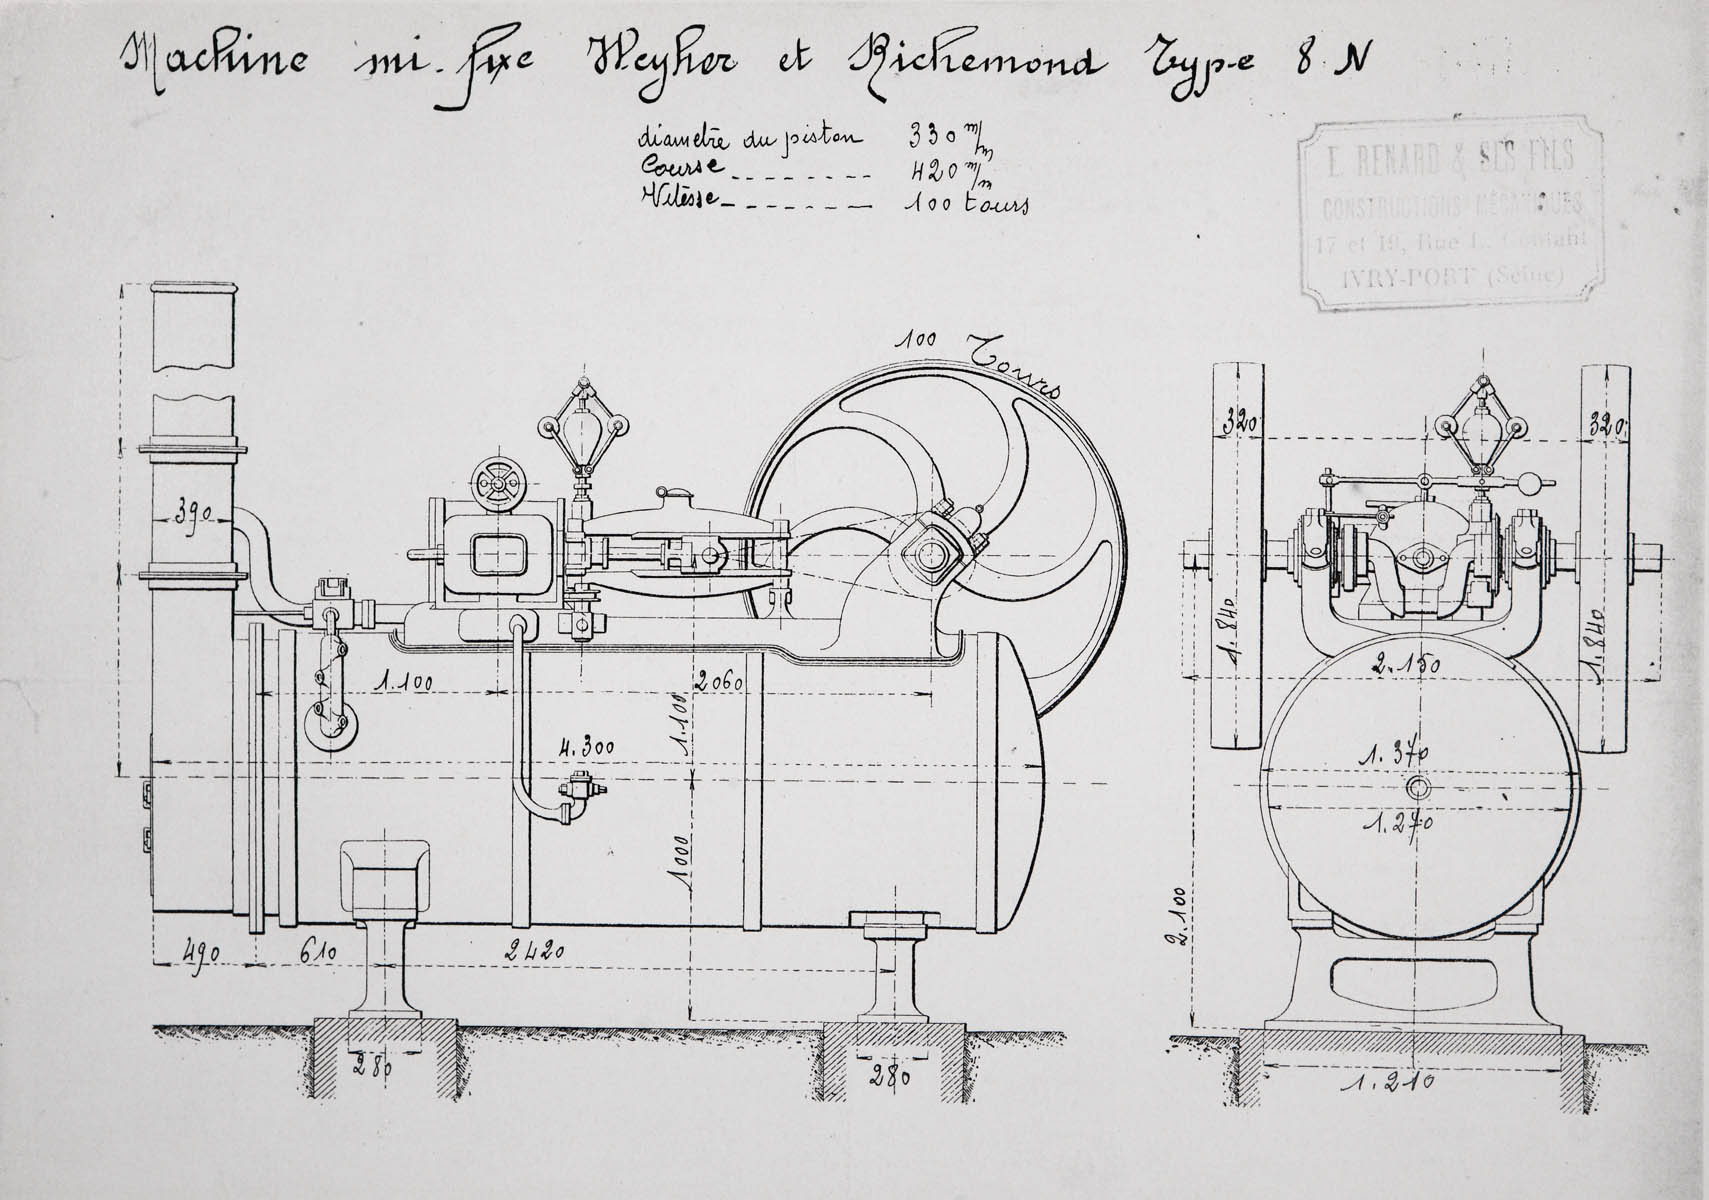 Machine mi-fixe Weyher et Richemond Type 8 N
diamètre du piston 330 m/m
Course 420 m/m
Vitèsse 100 tours
E. RENARD & SES FILS
CONSTRUCTIONS MÉCANIQUES
17 et 19, Rue L.
IVRY-PORT (Seine)
100 Tours
320
320
390
1.840
1.840
2.150
1.100
2060
1.100
4.300
1.370
1.270
1000
2.100
490
610
2420
280
280
1.210